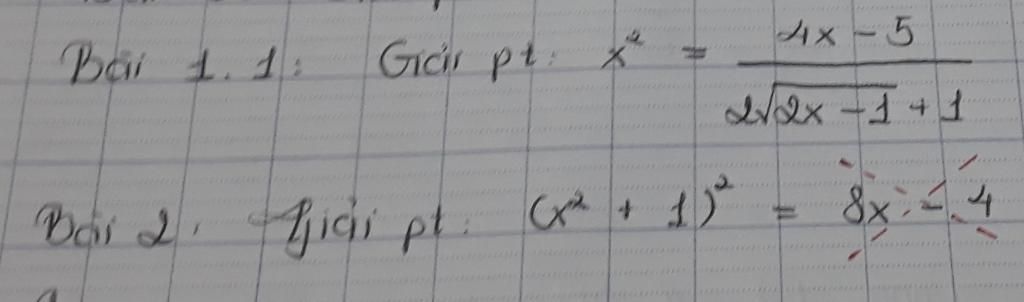 Bài 1.1: Giải pt: x² = (4x - 5)/(2√(2x - 1) + 1)
Bài 2. Giải pt: (x² + 1)² = 8x - 4